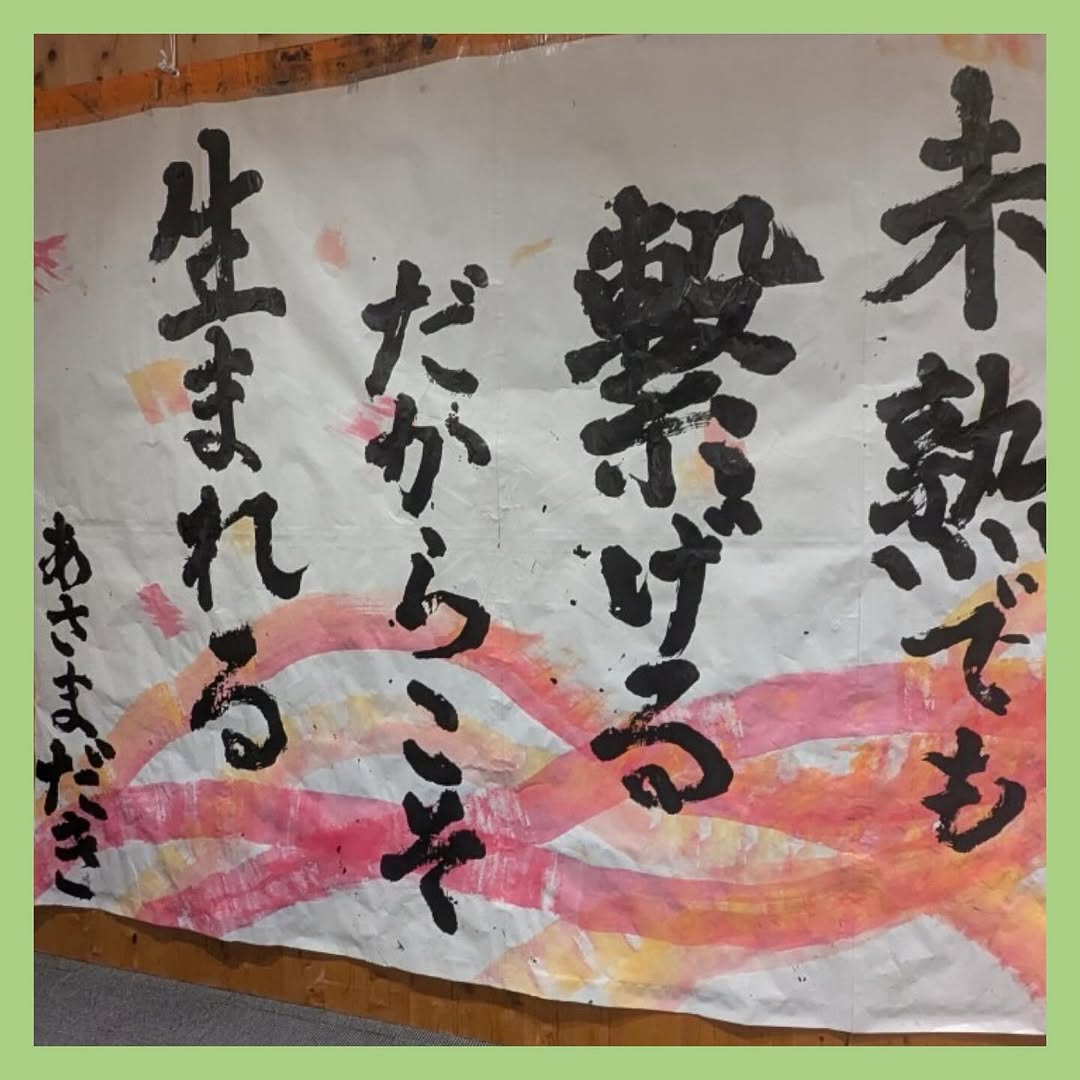 未熟でも
繋げる
だからこそ
生まれる
あさまだき